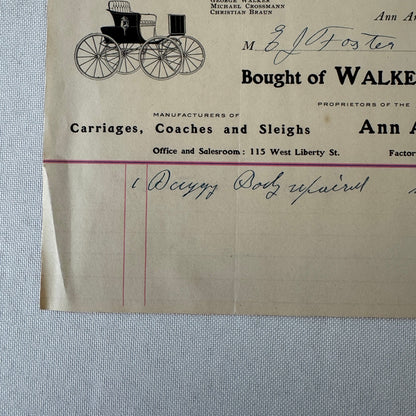 GEORGE WALKER
MICHAEL CROSSMANN
CHRISTIAN BRAUN
Ann Ar
M E J Foster
Bought of WALKE
PROPRIETORS OF THE
MANUFACTURERS OF
Carriages, Coaches and Sleighs
Ann A
Office and Salesroom: 115 West Liberty St.
Factor
1 Buggy Body repaired